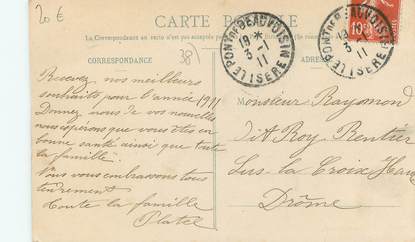 20 €
CARTE POSTALE
La Correspondance au
CORRESPONDANCE
38
LE PONT DE BEAUVOISIN
19 *
3 -1
11
ISERE
LE PONT DE BEAUVOISIN
19
3 -1
11
ISERE
10
Recevez nos meilleurs
souhaits pour l'année 1911
Donnez nous de vos nouvelles
nous espérons que vous êtes en
bonne santé ainsi que toute
la famille.
Nous vous embrassons tous
tendrement
Toute la famille
Monsieur Raymond
dit Roy Rentier
Lus-la-Croix-Haute
Drôme